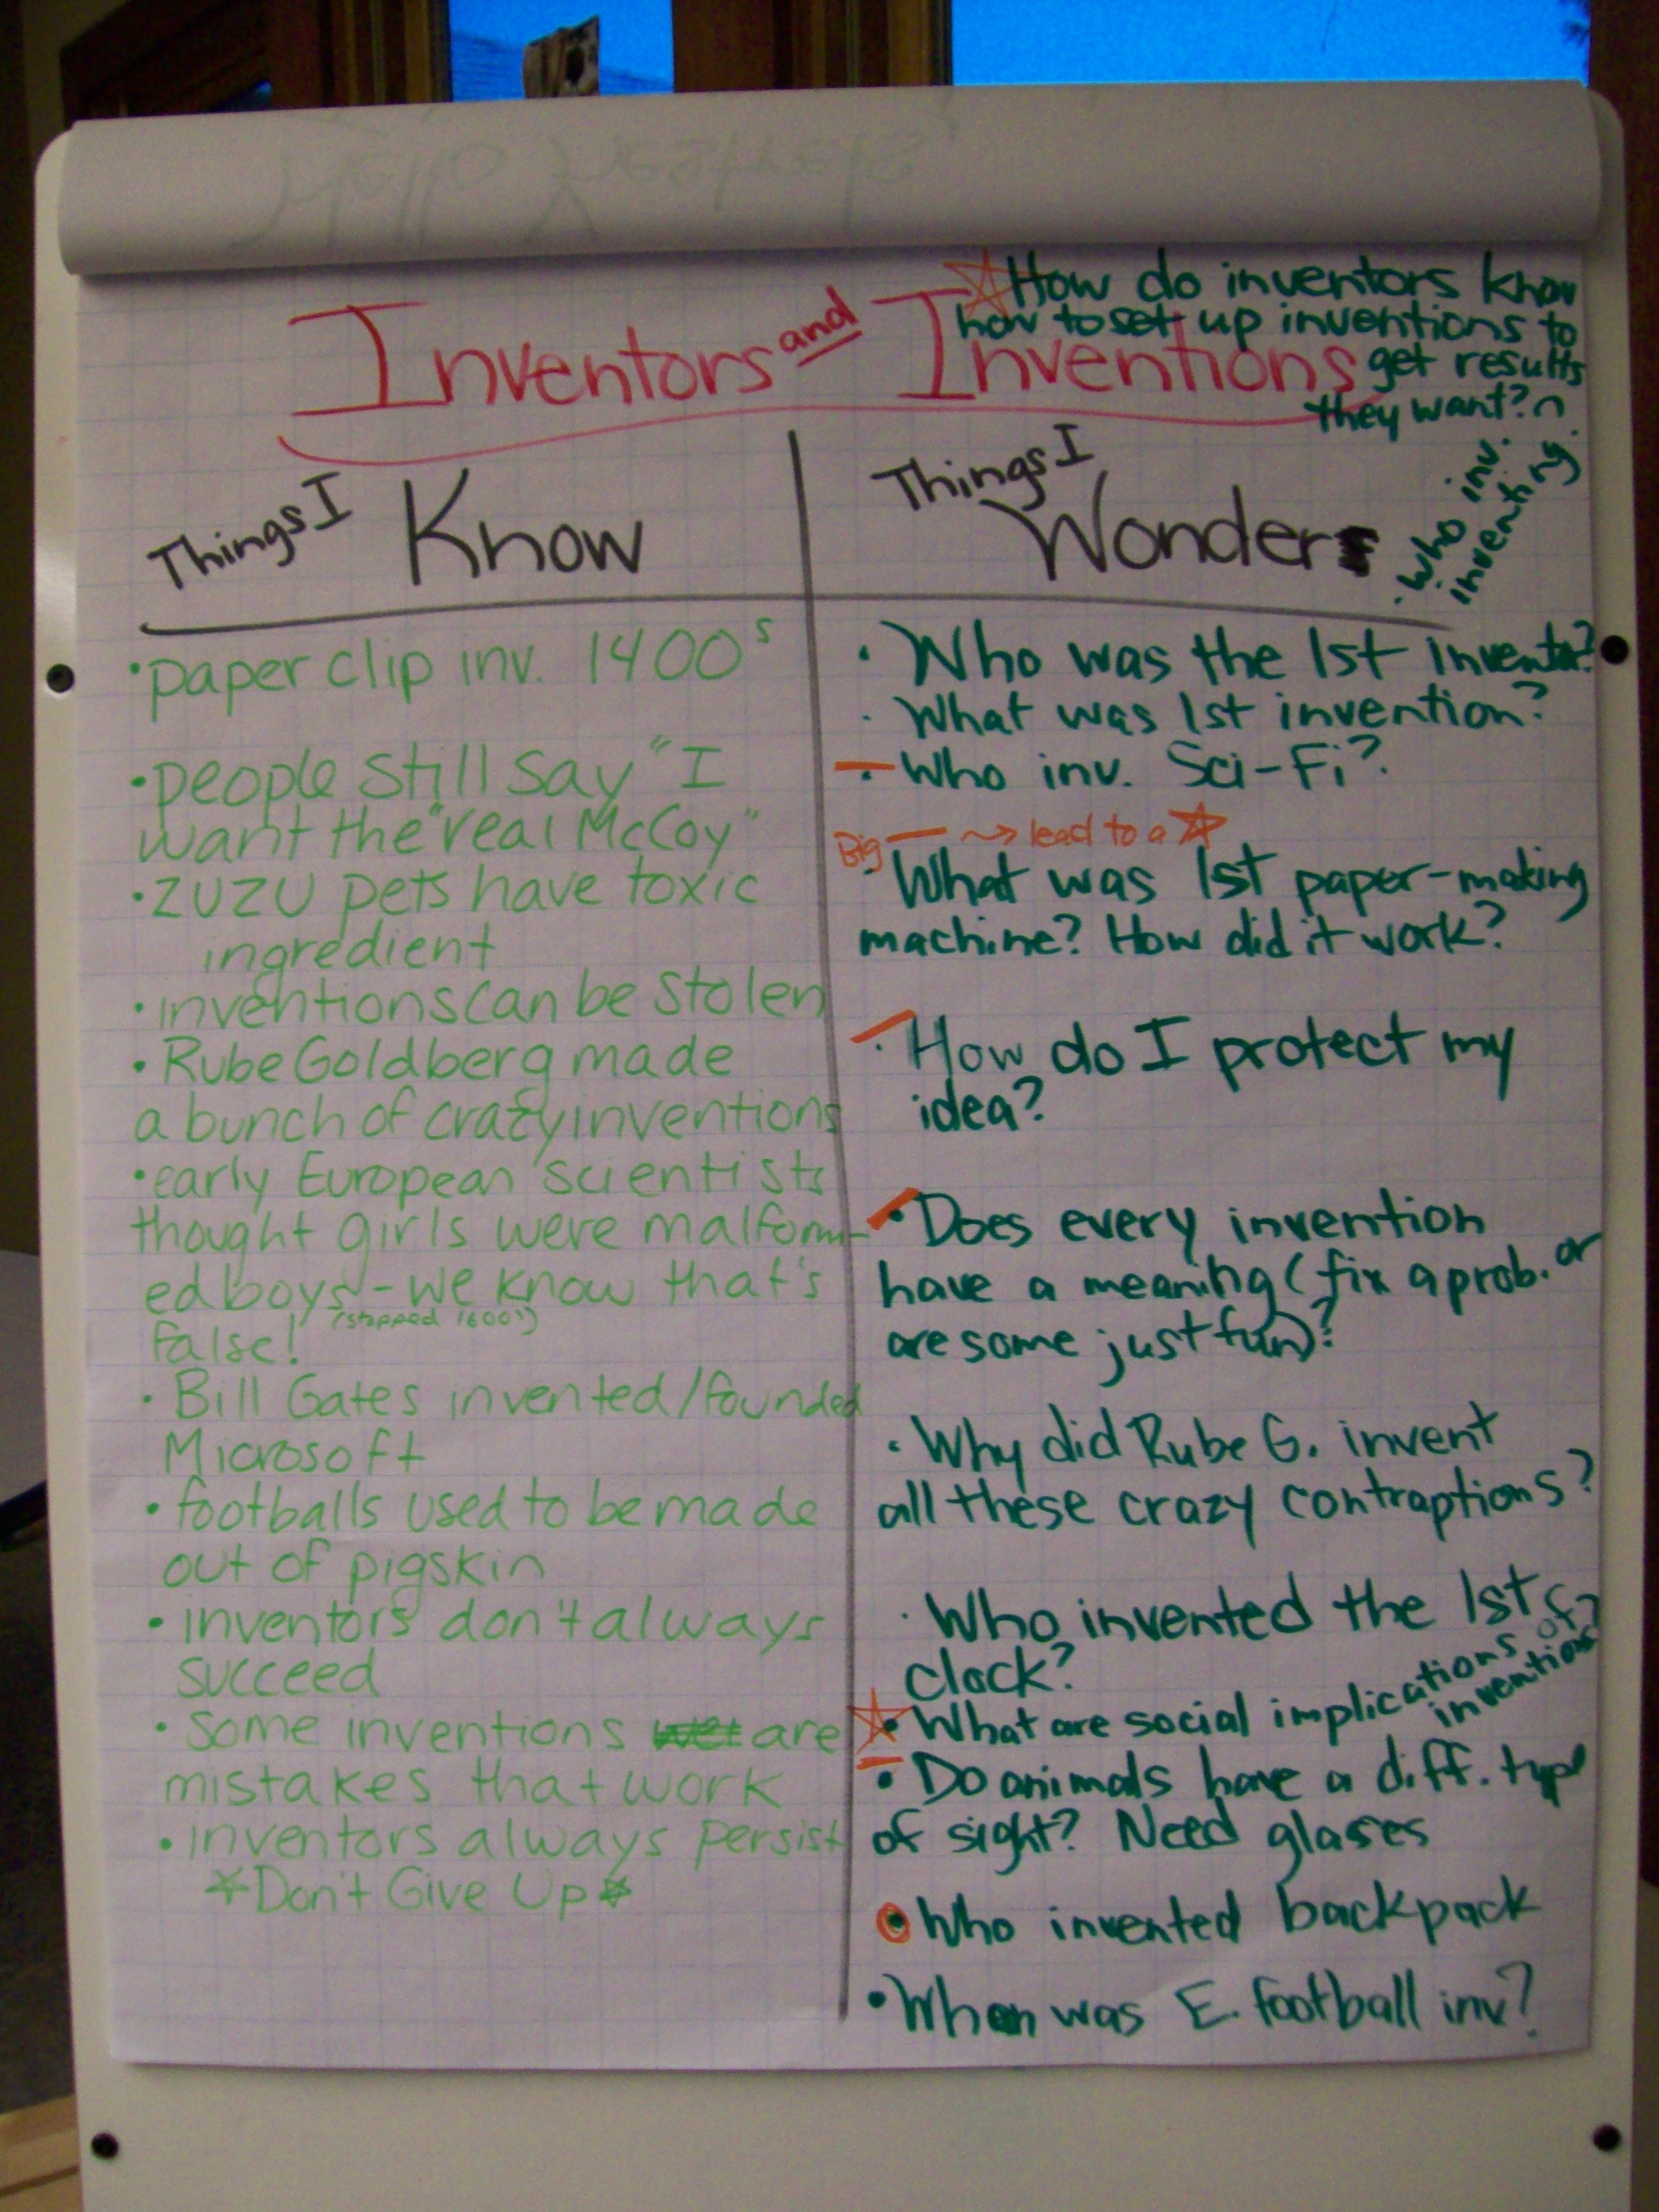 Inventors and Inventions
How do inventors know
how to set up inventions to
get results
they want?
Things I Know
paper clip inv. 1400s
people still say "I
want the "real McCoy"
ZUZU pets have toxic
ingredient
inventions can be stolen
Rube Goldberg made
a bunch of crazy inventions
early European scientists
thought girls were malform-
ed boys - we know that's
(stopped 1600's)
false!
Bill Gates invented/founded
Microsoft
footballs used to be made
out of pigskin
inventors don't always
succeed
Some inventions are
mistakes that work
inventors always persist
Don't Give Up
Things I Wonder
Who inv.
inventing
Who was the 1st inventor?
What was 1st invention?
Who inv. Sci-Fi?
Big — lead to a
What was 1st paper-making
machine? How did it work?
How do I protect my
idea?
Does every invention
have a meaning (fix a prob. or
are some just fun)?
Why did Rube G. invent
all these crazy contraptions?
Who invented the 1st
clock?
What are social implications of
inventions?
Do animals have a diff. type
of sight? Need glases
Who invented backpack
When was E. football inv?